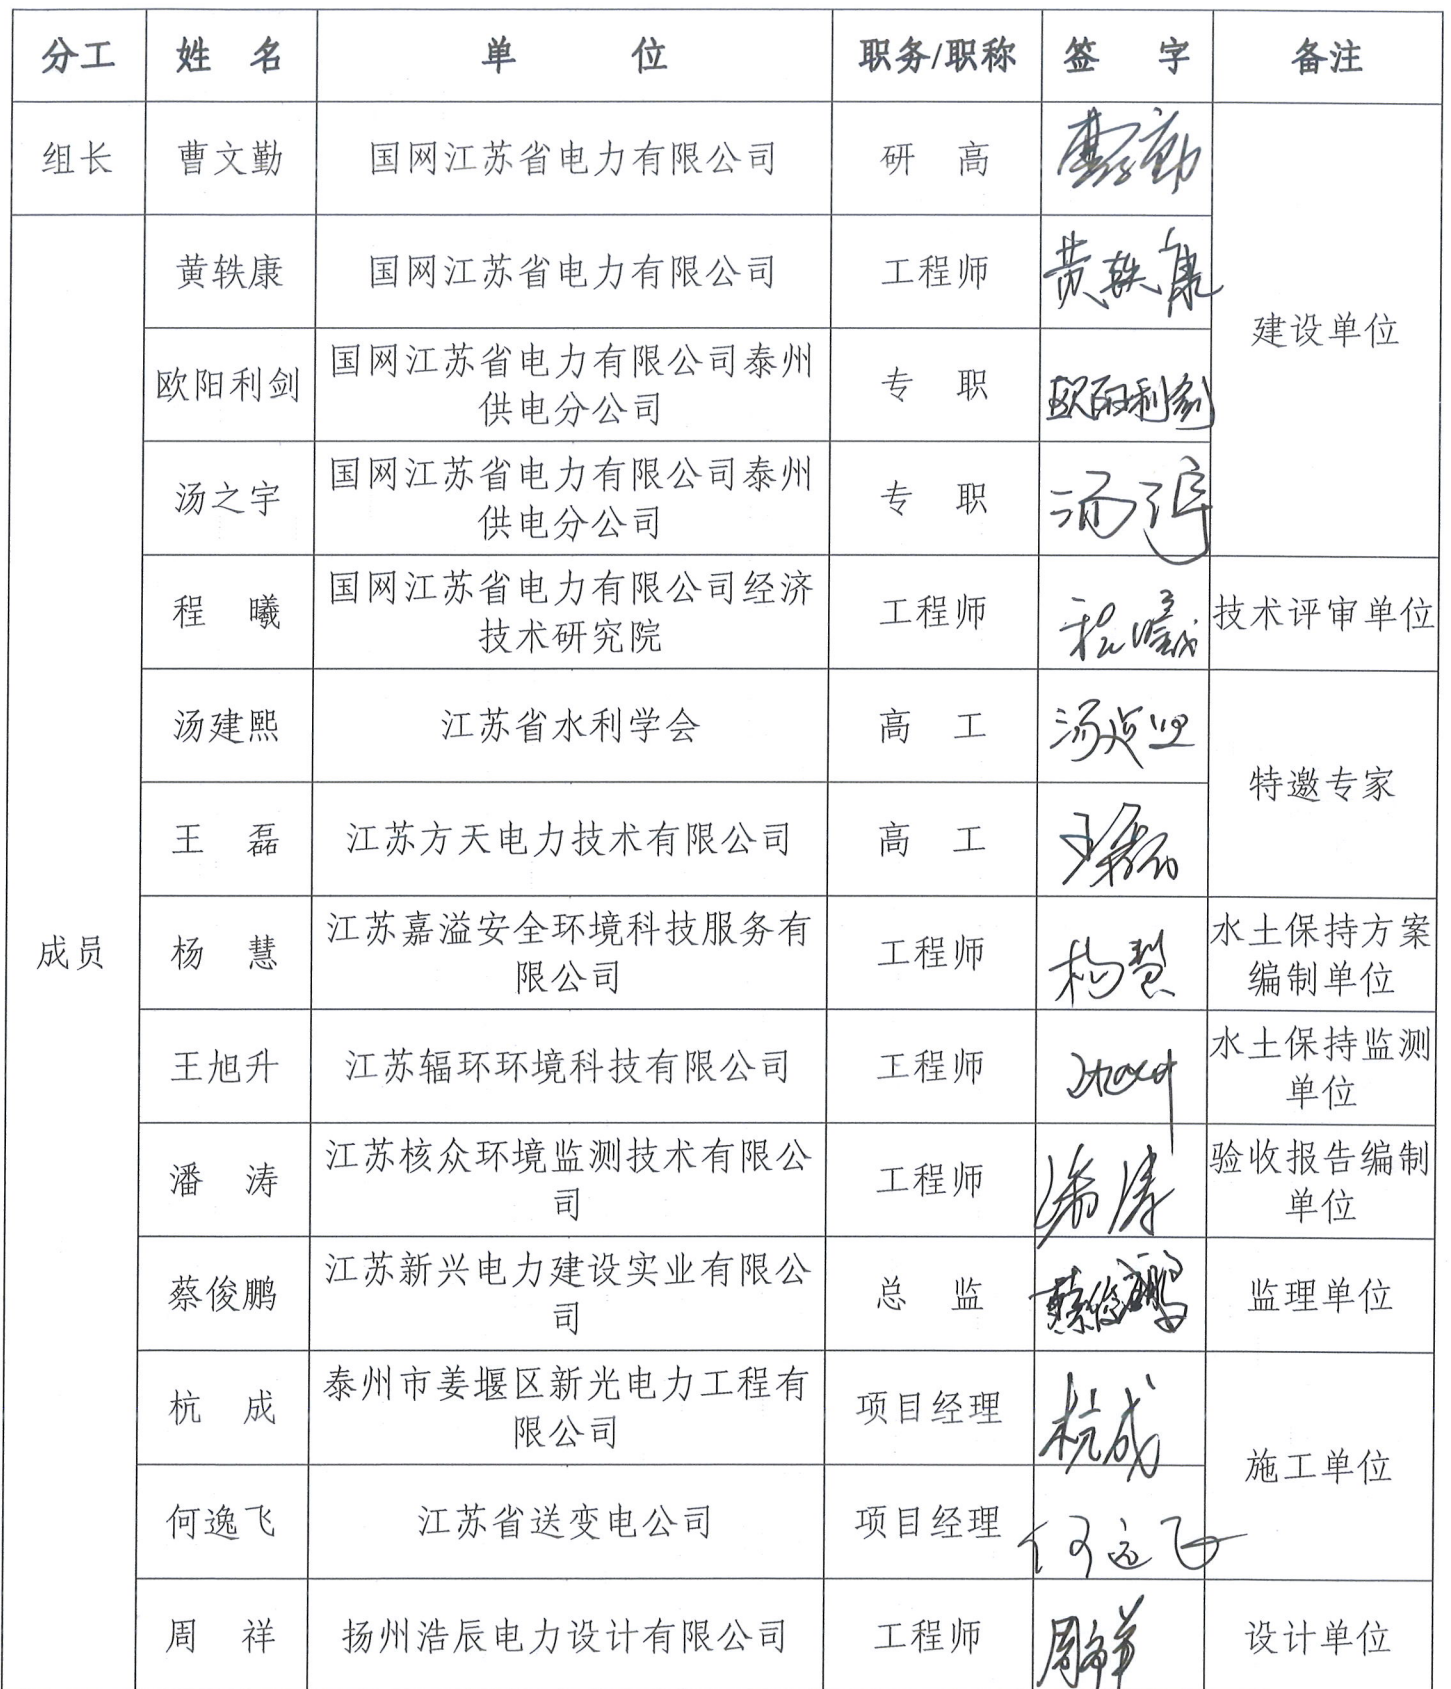 分工 姓 名 单 位 职务/职称 签 字 备注
组长 曹文勤 国网江苏省电力有限公司 研 高 曹文勤
黄轶康 国网江苏省电力有限公司 工程师 黄轶康
建设单位
欧阳利剑 国网江苏省电力有限公司泰州
供电分公司 专 职 欧阳利剑
汤之宇 国网江苏省电力有限公司泰州
供电分公司 专 职 汤之宇
程 曦 国网江苏省电力有限公司经济
技术研究院 工程师 程曦 技术评审单位
汤建熙 江苏省水利学会 高 工 汤建熙
特邀专家
王 磊 江苏方天电力技术有限公司 高 工 王磊
成员 杨 慧 江苏嘉溢安全环境科技服务有
限公司 工程师 杨慧 水土保持方案
编制单位
王旭升 江苏辐环环境科技有限公司 工程师 水土保持监测
单位
潘 涛 江苏核众环境监测技术有限公
司 工程师 潘涛 验收报告编制
单位
蔡俊鹏 江苏新兴电力建设实业有限公
司 总 监 蔡俊鹏 监理单位
杭 成 泰州市姜堰区新光电力工程有
限公司 项目经理 杭成
施工单位
何逸飞 江苏省送变电公司 项目经理 何逸飞
周 祥 扬州浩辰电力设计有限公司 工程师 周祥 设计单位